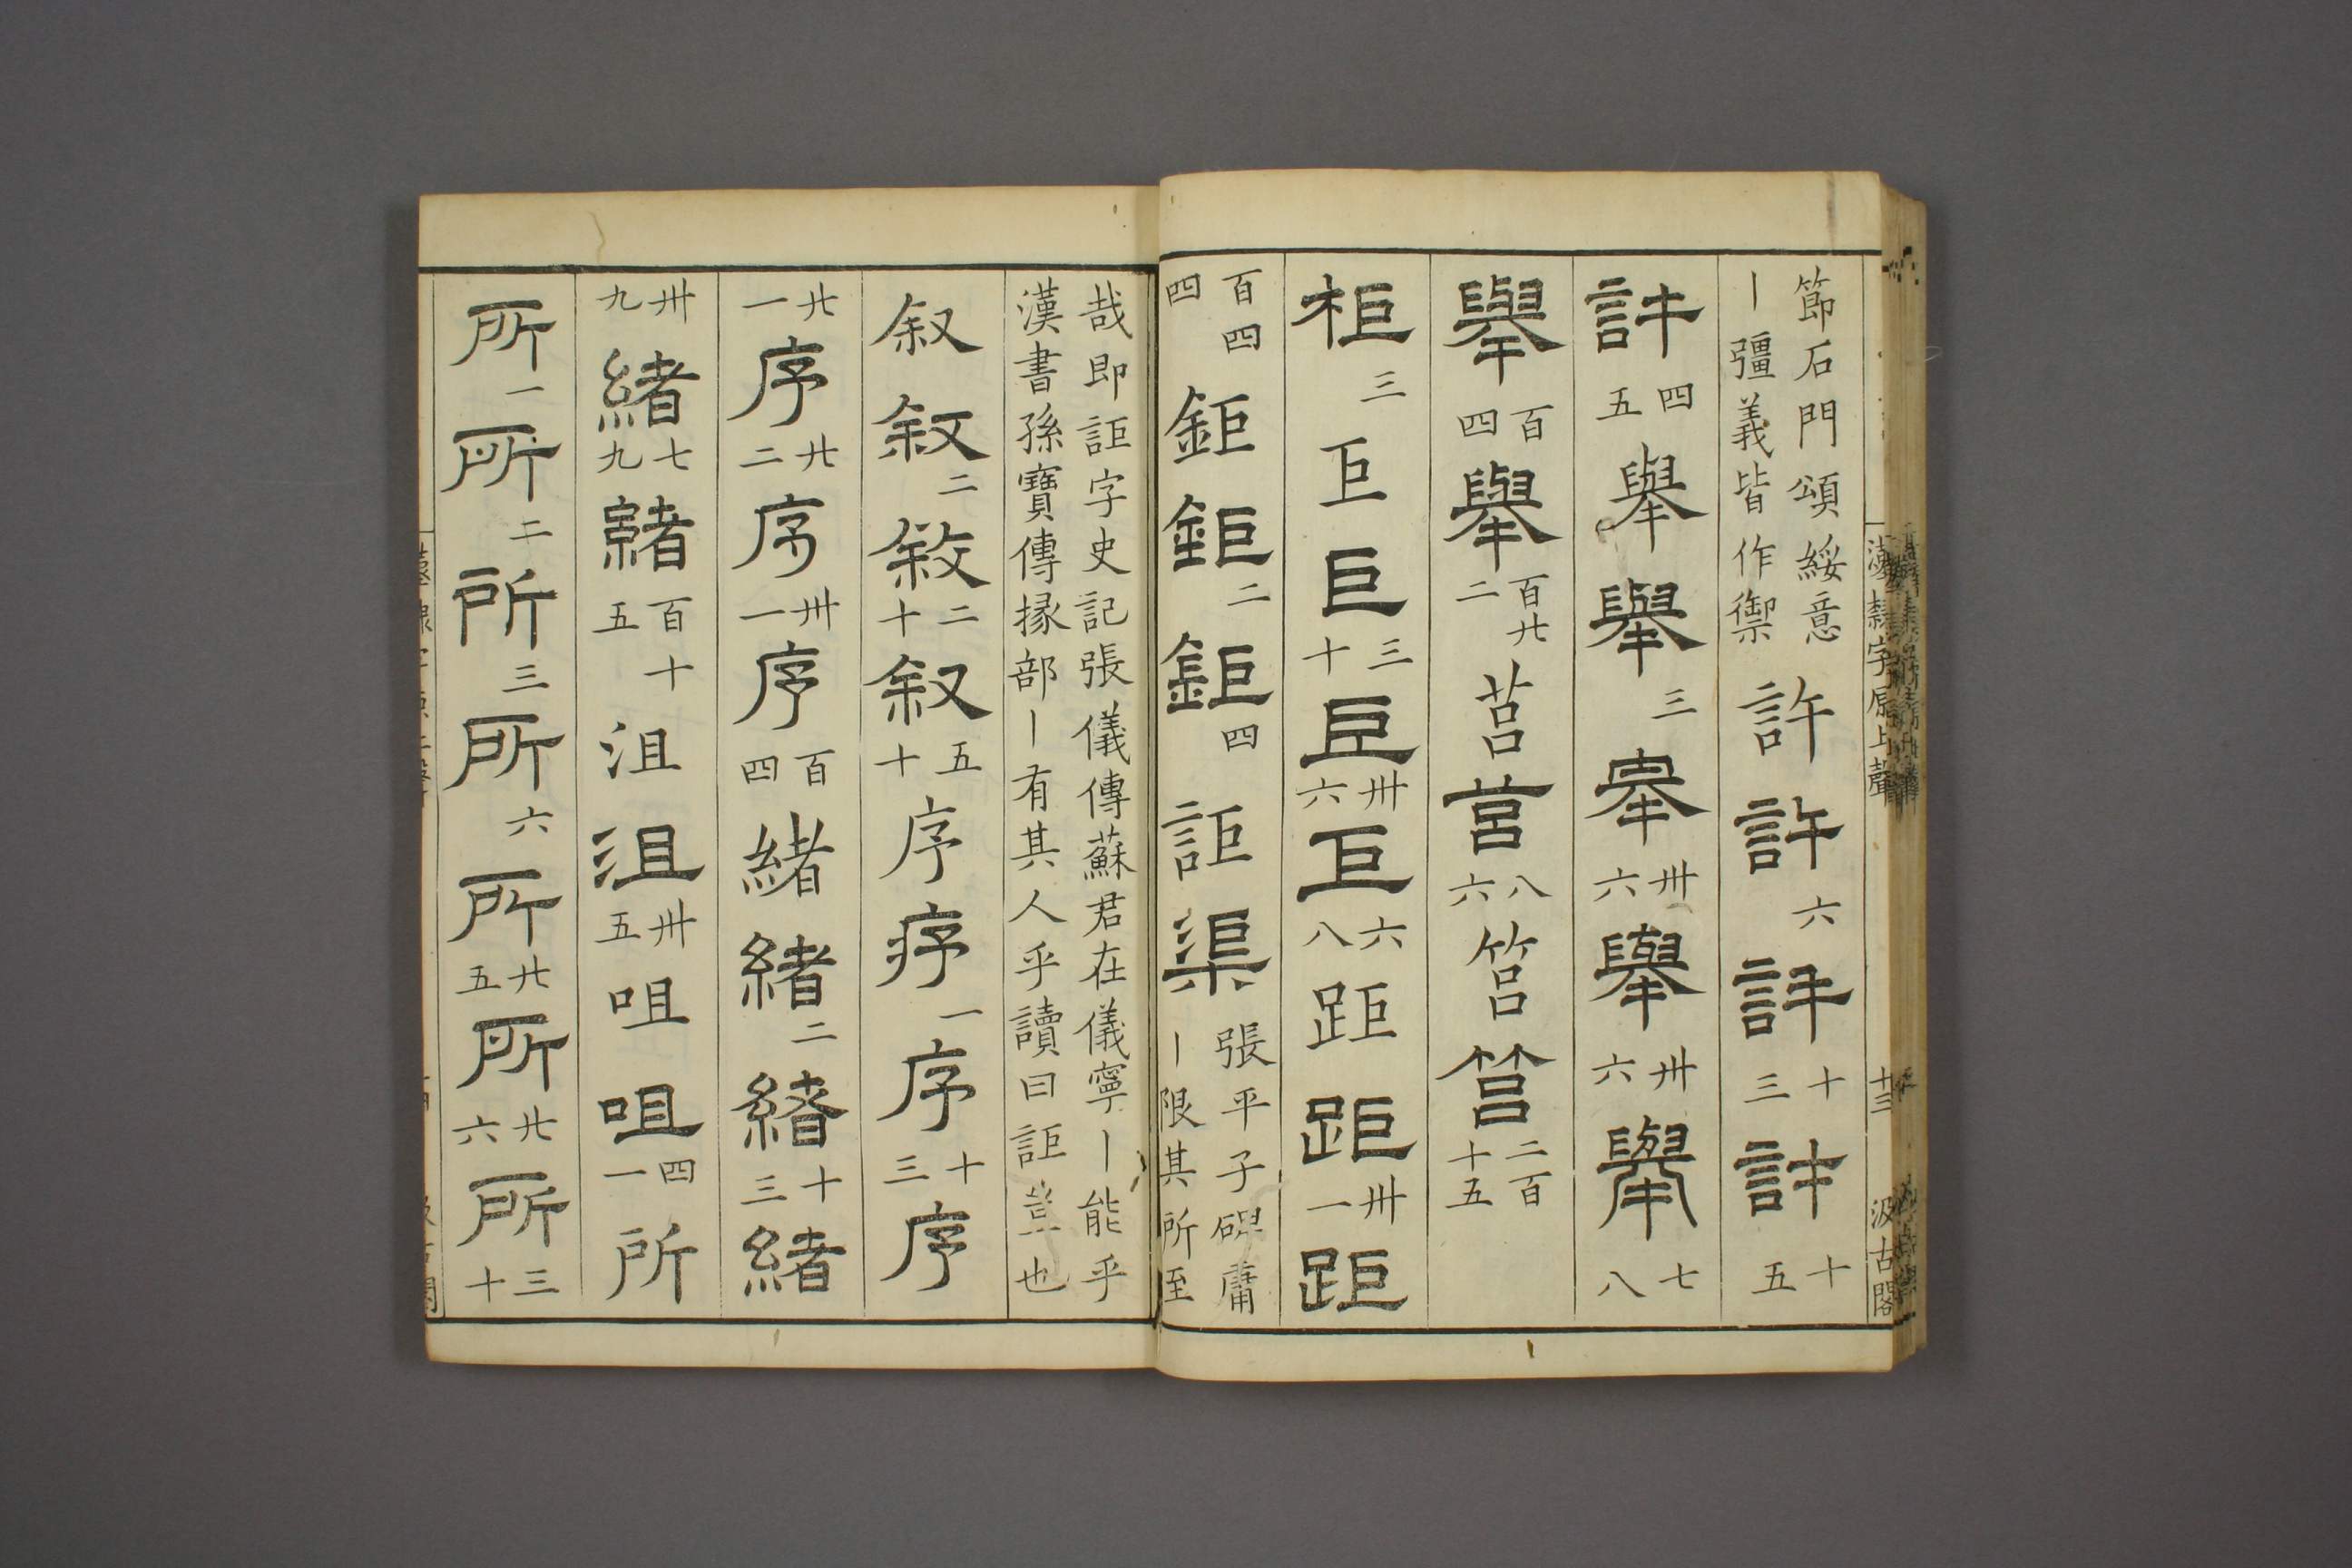 漢隸字原上聲 十三 汲古閣
節石門頌綏意
丨彊義皆作禦 許 許 六 許 十三 許 十五
許 四五 舉 舉 三 舉 卅六 舉 卅六 舉 七八
舉 百四 舉 百廿二 莒 莒 八六 筥 筥 二百十五
柜 三 巨 巨 三十 巨 卅六 巨 六八 距 距 卅一 距
百四四 鉅 鉅 二 鉅 四 詎 渠 張平子碑庸
丨限其所至
哉即詎字史記張儀傳蘇君在儀寧丨能乎
漢書孫寶傳掾部丨有其人乎讀曰詎豈也
叙 敘 二 敘 二十 叙 五十 序 序 一 序 十三 序
廿一 序 廿二 序 卅一 序 百四 緒 緒 二 緒 十三 緒
卅九 緒 七九 緒 百十五 沮 沮 卅五 咀 咀 四一 所
所 一 所 二 所 三 所 六 所 廿五 所 廿六 所 三十